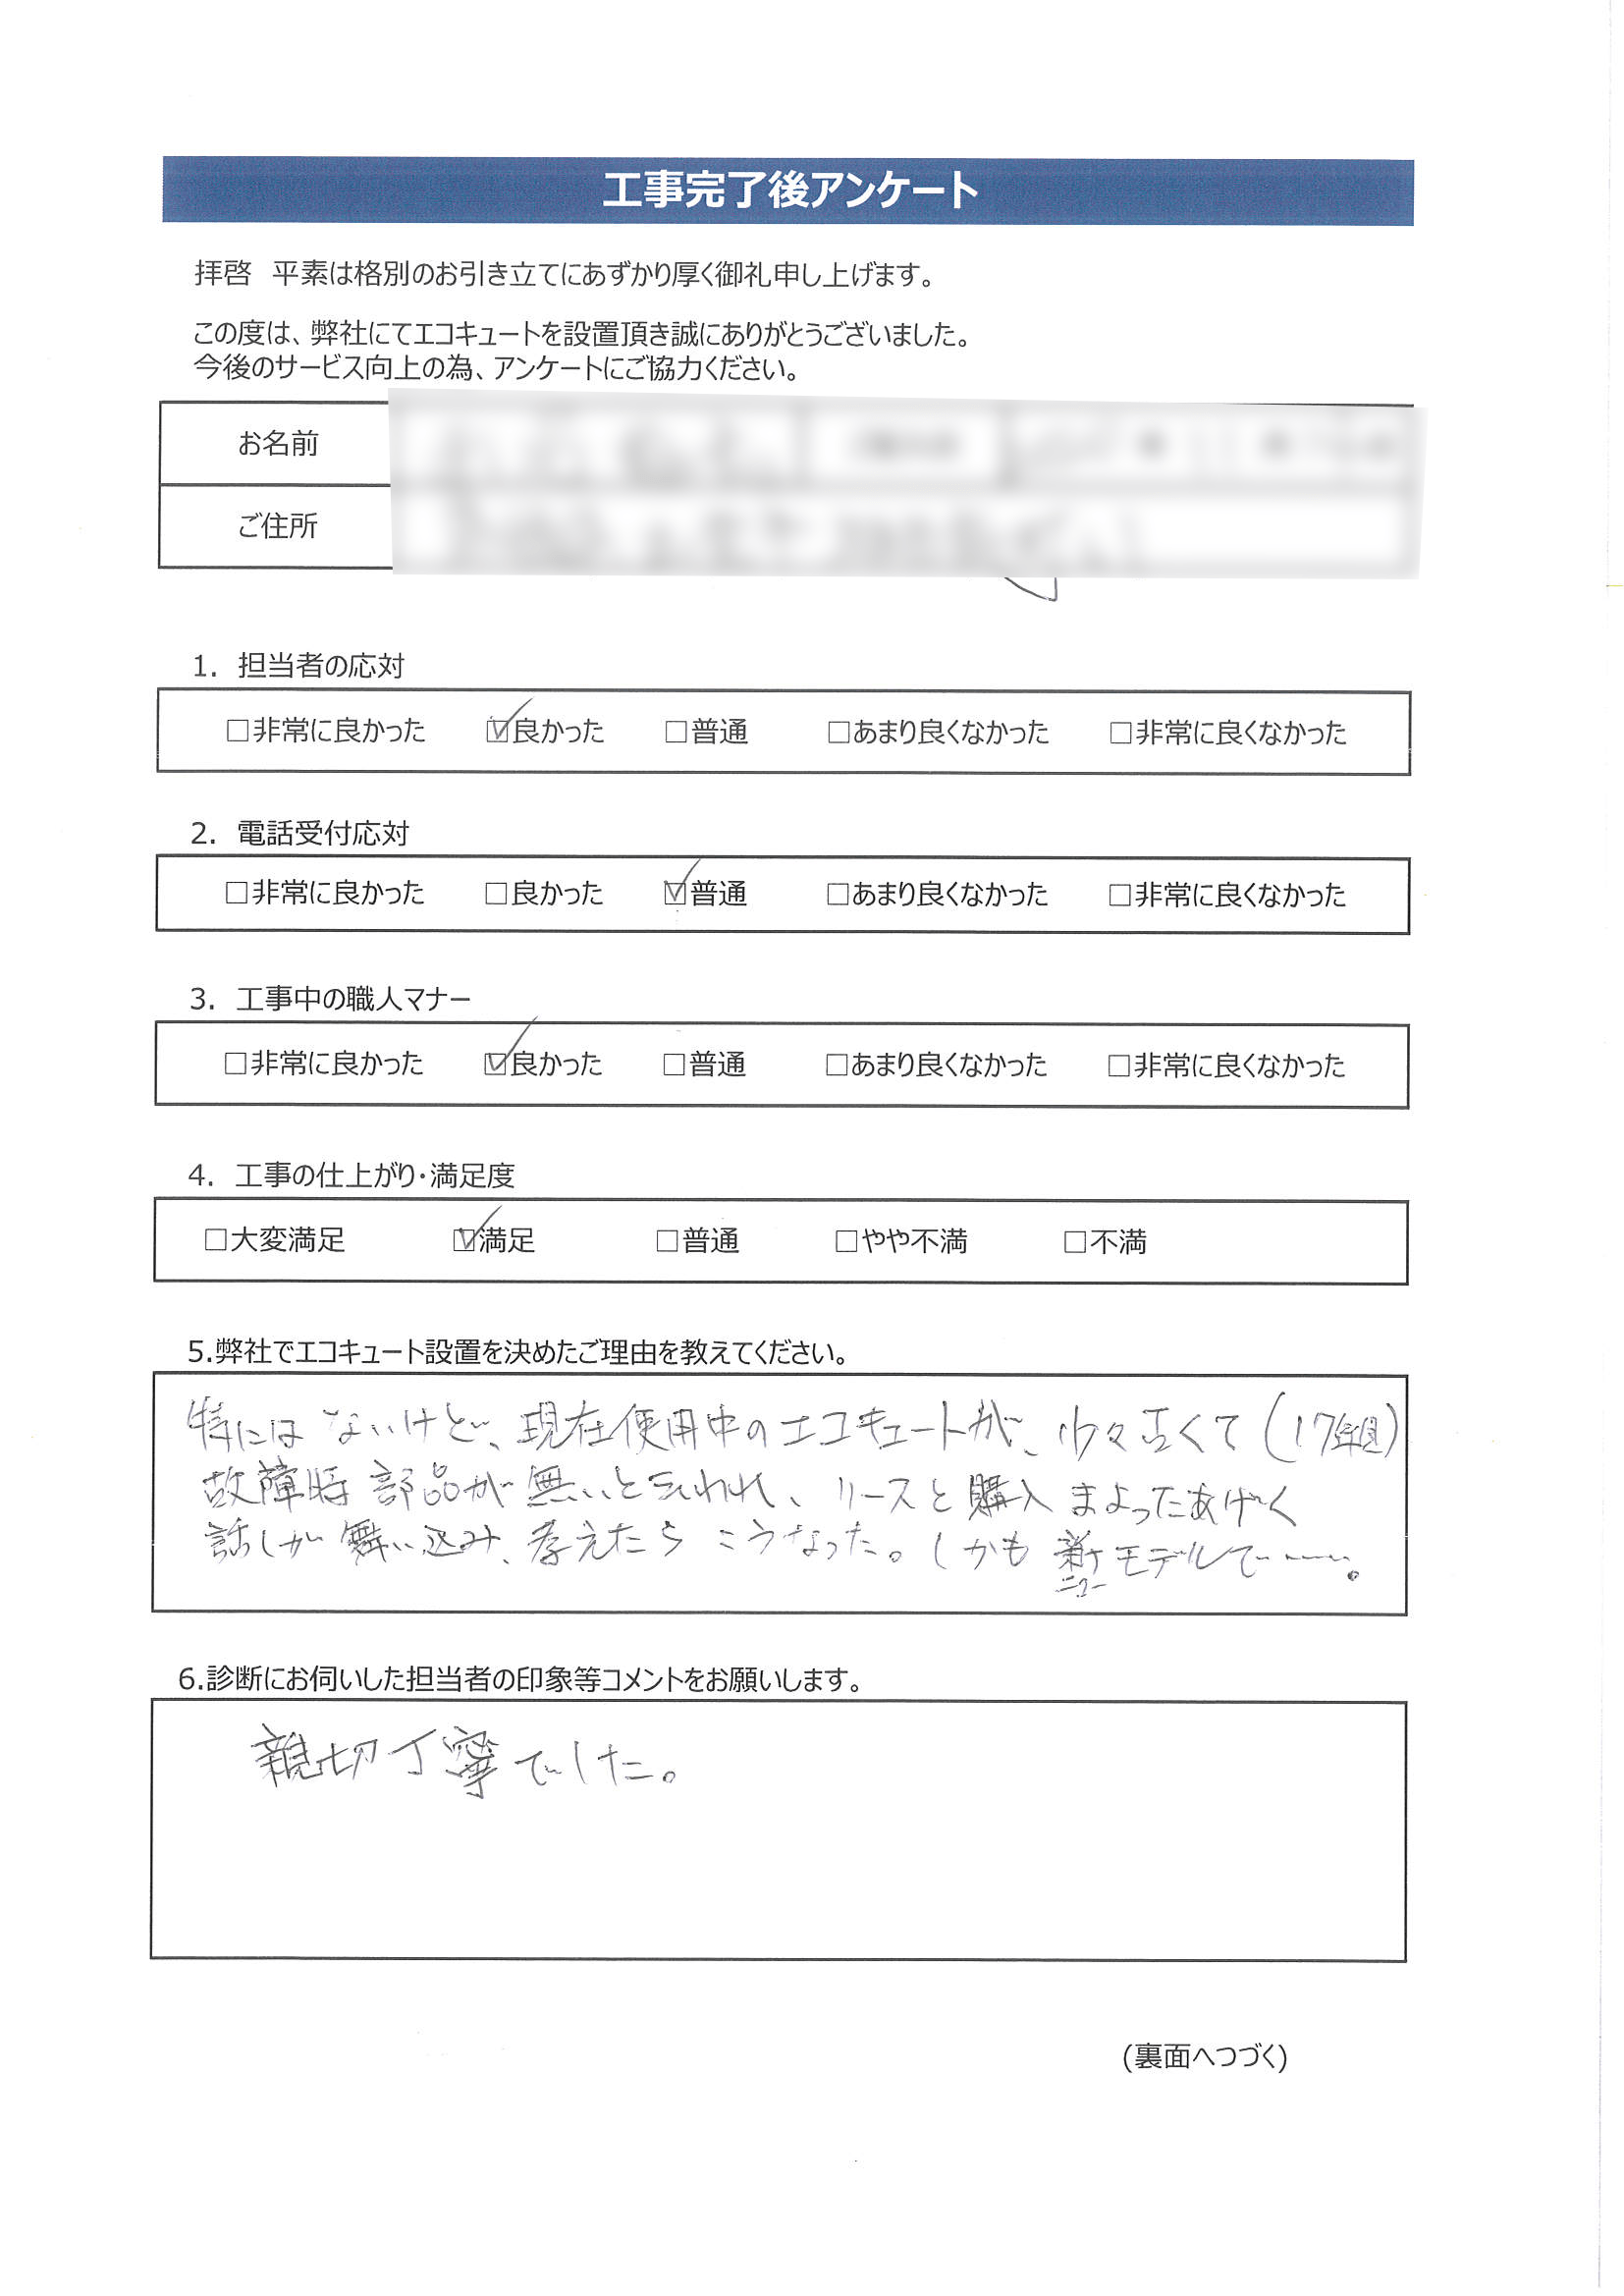 工事完了後アンケート
拝啓　平素は格別のお引き立てにあずかり厚く御礼申し上げます。
この度は、弊社にてエコキュートを設置頂き誠にありがとうございました。
今後のサービス向上の為、アンケートにご協力ください。
お名前
ご住所
1. 担当者の応対
□非常に良かった ☑良かった □普通 □あまり良くなかった □非常に良くなかった
2. 電話受付応対
□非常に良かった □良かった ☑普通 □あまり良くなかった □非常に良くなかった
3. 工事中の職人マナー
□非常に良かった ☑良かった □普通 □あまり良くなかった □非常に良くなかった
4. 工事の仕上がり・満足度
□大変満足 ☑満足 □普通 □やや不満 □不満
5.弊社でエコキュート設置を決めたご理由を教えてください。
特にはないけど、現在使用中のエコキュートが、少々古くて(17年目)
故障時部品が無いと云われ、リースと購入まよったあげく
話しが舞い込み、考えたらこうなった。しかも新モデルで……。
ニュー
6.診断にお伺いした担当者の印象等コメントをお願いします。
親切丁寧でした。
(裏面へつづく)